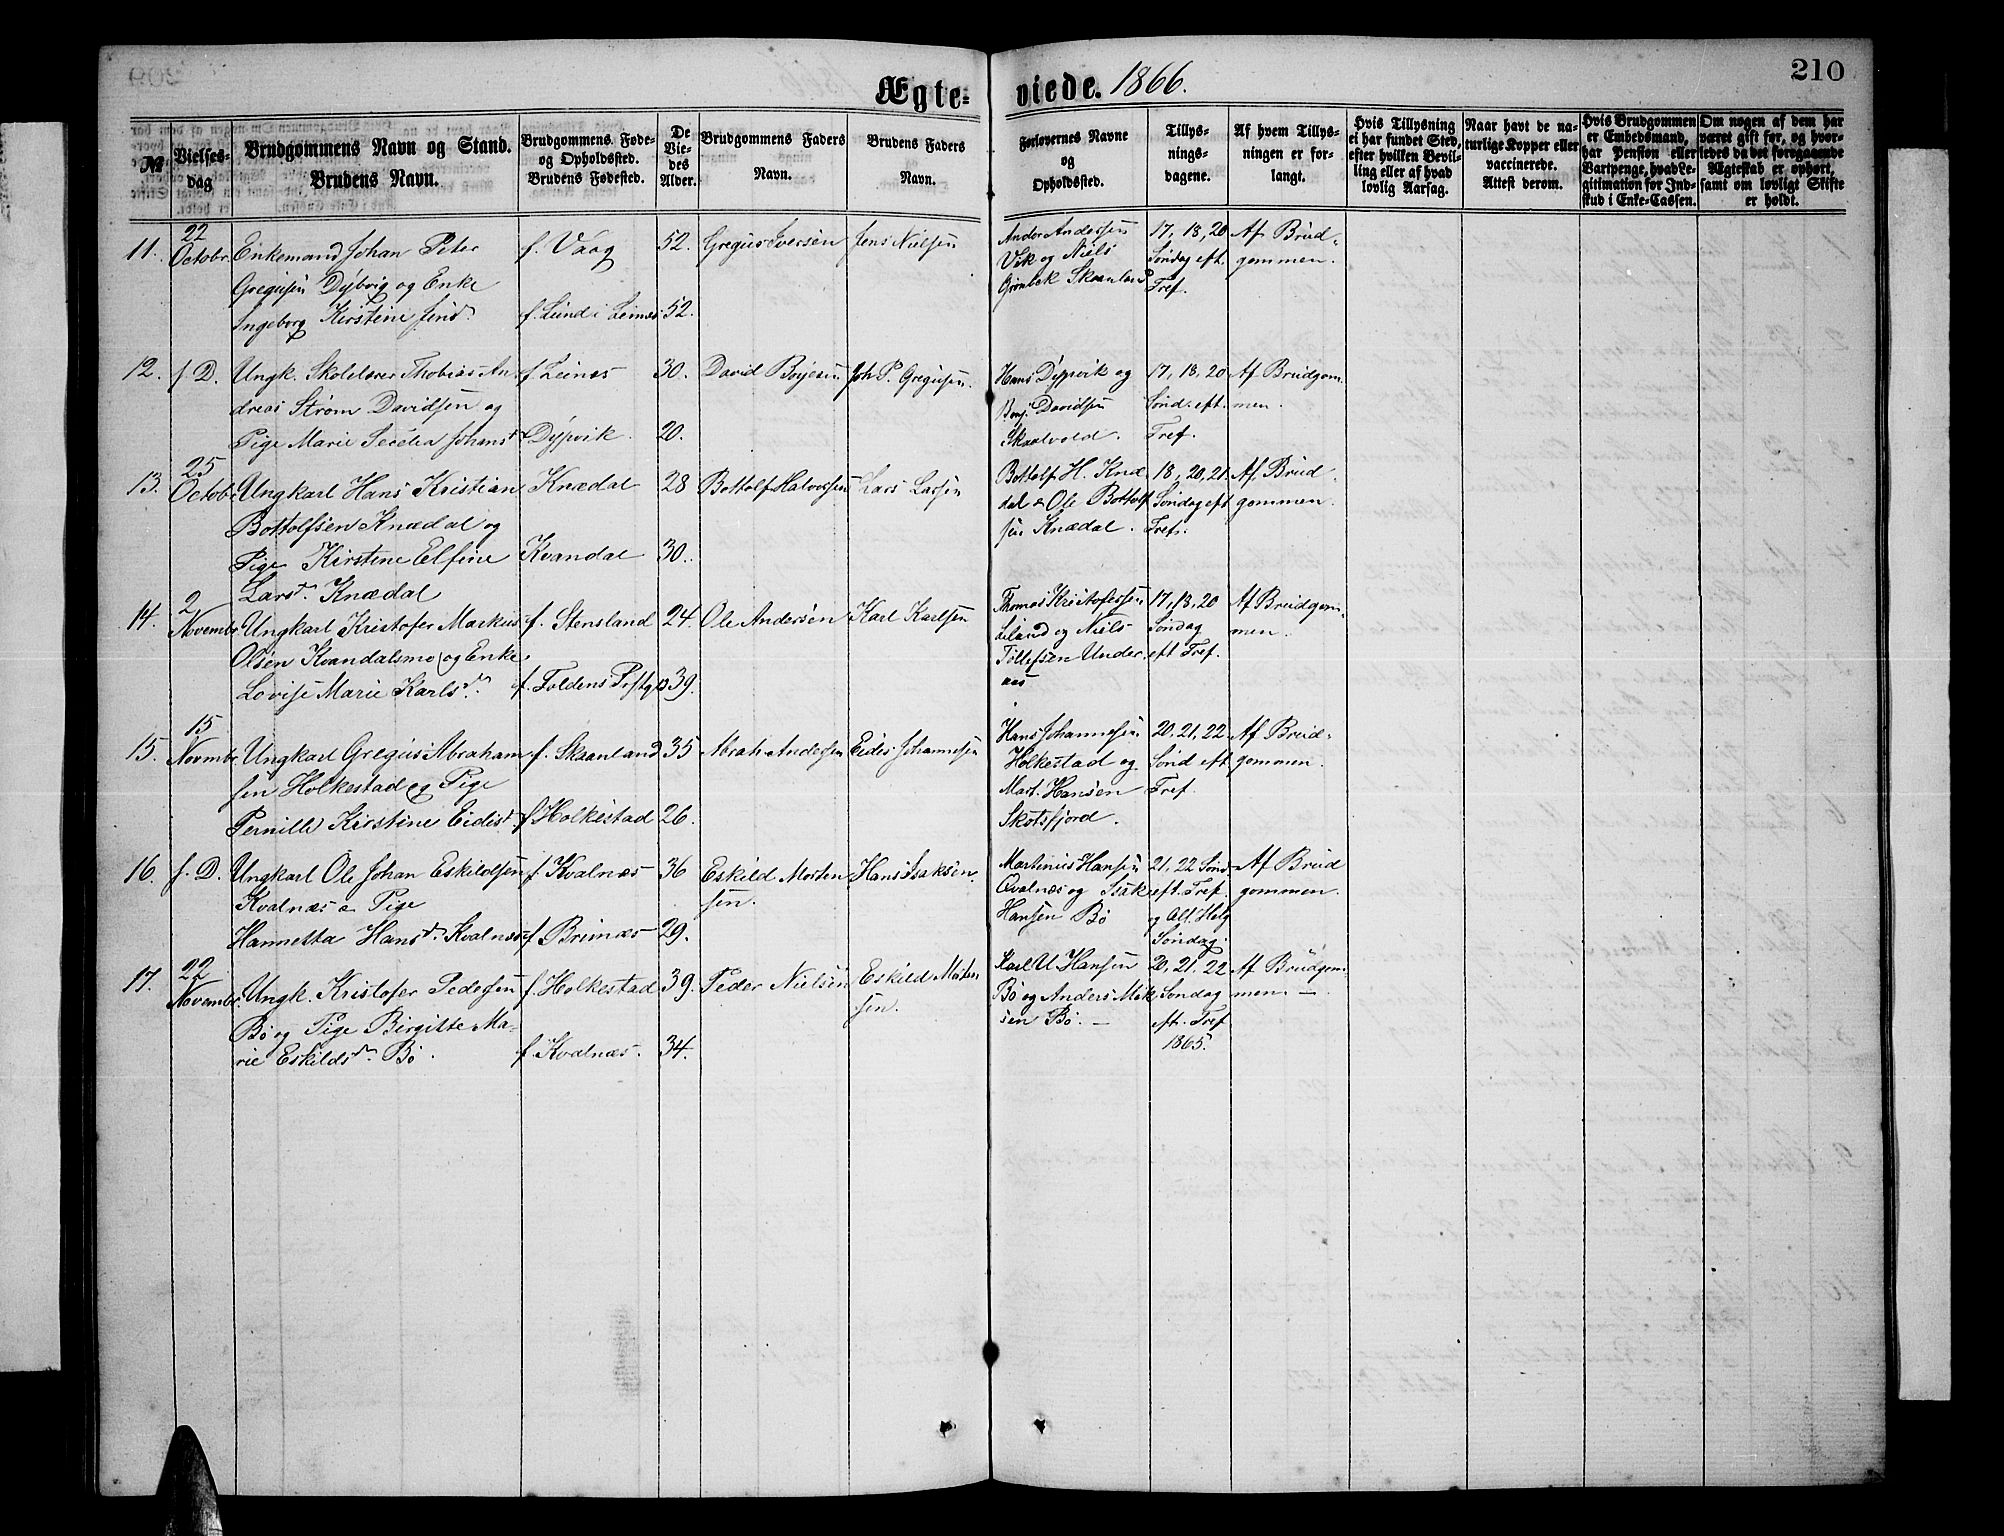 Ægteviede. 1866.
210
№
Vielsesdag
Brudgommens Navn og Stand.
Brudens Navn.
Brudgommens Føde- og Opholdssted.
Brudens Fødested.
De Viedes Alder.
Brudgommens Faders Navn.
Brudens Faders Navn.
Forlovernes Navne og Opholdssted.
Tillysningsdagene.
Af hvem Tillysningen er forlangt.
Hvis Tillysning ei har fundet Sted, efter hvilken Bevilling eller af hvad lovlig Aarsag.
Naar havt de naturlige Kopper eller vaccinerede. Attest derom.
Hvis Brudgommen er Embedsmand, har Pension eller Vartpenge, hvad Legitimation for Indskud i Enke-Cassen.
Om nogen af dem har været gift før, og hvorledes da det foregaaende Ægteskab er ophørt, samt om lovligt Skifte er holdt.
11. 22 Octobr. Enkemand Johan Peter f. Vaag 52. Gregus Iversen Jens Nielsen Andor Andersen 17, 18, 20 Af Brud-
Gregusen Dybvig og Enke Vik og Niels Søndag eft. gommen.
Ingeborg Kirstine Jensd. f. Lund i Leines 52. Grønbek Skaanland Tref.
12. s. D. Ungk. Skolelærer Thobias An- f. Leines 30. David Boyesen Joh P. Gregusen. Hans Dypvik og 17, 18, 20 Af Brudgom-
dreas Strøm Davidsen og Benj. Davidsen Sønd. eft. men.
Pige Marie Secelia Johansd. Dypvik. 20. Skaalvold. Tref.
13. 25 Octobr. Ungkarl Hans Kristian Knædal 28 Bottolf Halvorsen Lars Larsen Bottolf H. Knæ- 18, 20, 21. Af Brud-
Bottolfsen Knædal og dal & Ole Bottolf- Søndag eft gommen.
Pige Kirstine Elfine Kvandal 30. sen Knædal. Tref.
Larsd. Knædal
14. 2 Novembr. Ungkarl Kristofer Markus f. Stensland 24 Ole Andersen Karl Karlsen Thomas Kristofersen 17, 18, 20 Af Brudgom-
Olsen Kvandalsmo og Enke Leland og Niels Søndag men.
Lovise Marie Karlsd. f. Foldens Prstgd 39. Tollefsen Under- eft Tref.
aas
15. 15 Novmbr. Ungkarl Gregus Abraham- f. Skaanland 35 Abrah. Andersen Eidis Johannesen Hans Johannesen 20. 21. 22. Af Brud-
sen Holkestad og Pige Holkestad og Sønd eft gommen.
Pernille Kirstine Eidisd. f. Holkestad 26. Mart. Hansen Tref.
Skotsfjord.
16. s. D. Ungkarl Ole Johan Eskildsen f. Kvalnæs 36 Eskild Morten- Hans Isaksen. Martinus Hansen 21, 22 Sønd Af Brud
Kvalnæs & Pige sen. Qvalnæs og Isak eft. Tref gommen.
Hannetta Hansd. Kvalnæs f. Brunæs 29. Hansen Bø og All. Helg
Søndag.
17. 22 Novembr. Ungk. Kristofer Pedersen f. Holkestad 39. Peder Nielsen Eskild Morten- Karl U Hansen 20, 21, 22 Af Brudgom-
Bø og Pige Birgitte Ma- sen. Bø og Anders Mik- Søndag men. —
rie Eskildsd. Bø. f. Kvalnæs. 34. sen Bø. — eft. Tref
1865.